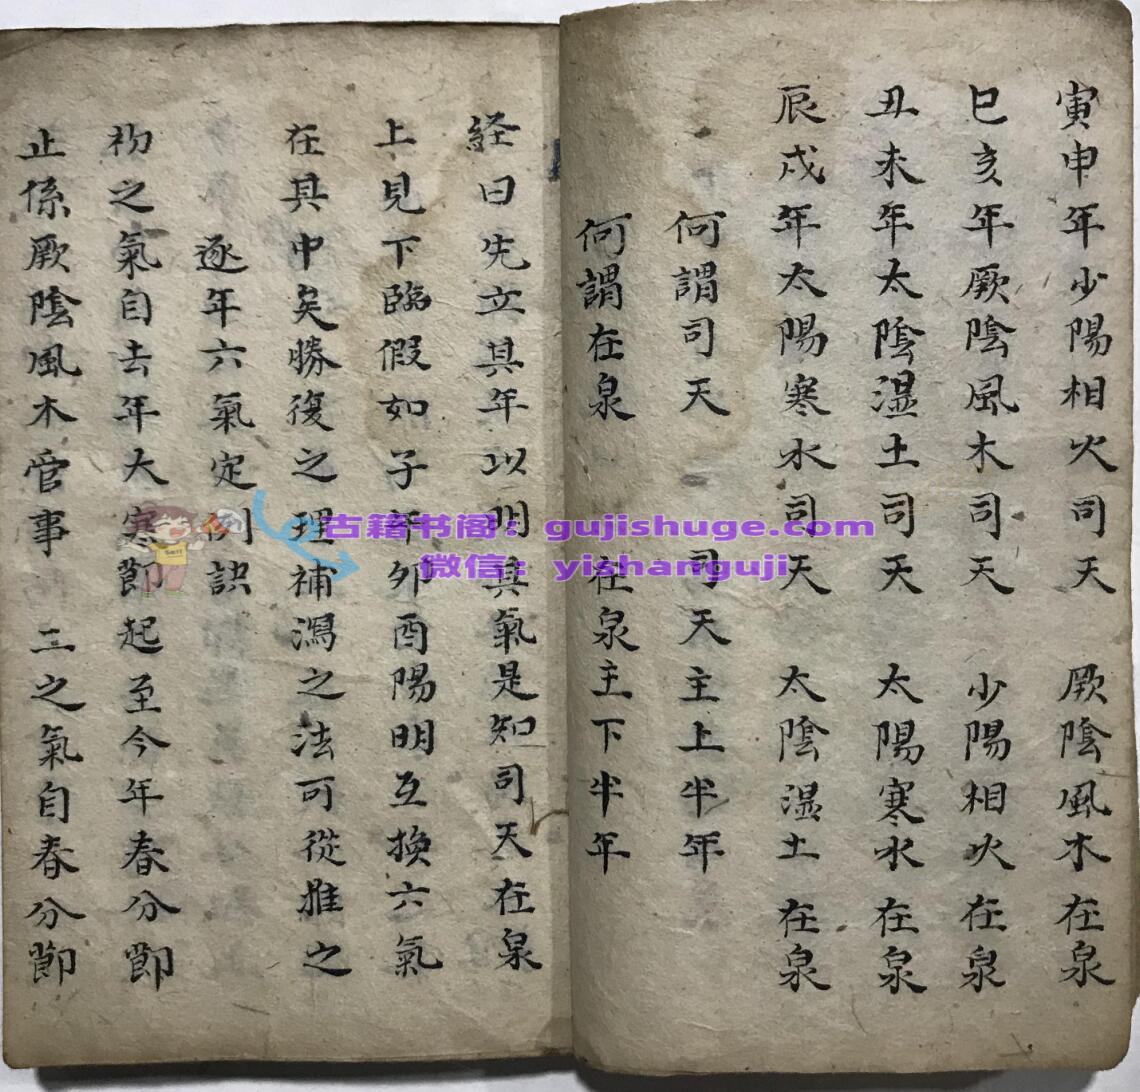 寅申年少陽相火司天　厥陰風木在泉
巳亥年厥陰風木司天　少陽相火在泉
丑未年太陰湿土司天　太陽寒水在泉
辰戌年太陽寒水司天　太陰湿土在泉
何謂司天　司天主上半年
何謂在泉　在泉主下半年
経曰先立其年以明其氣是知司天在泉
上見下臨假如子午卯酉陽明互換六氣
在其中矣勝復之理補瀉之法可從推之
逐年六氣定例訣
初之氣自去年大寒節起至今年春分節
止係厥陰風木管事　二之氣自春分節
古籍书阁：gujishuge.com
微信：yishanguji